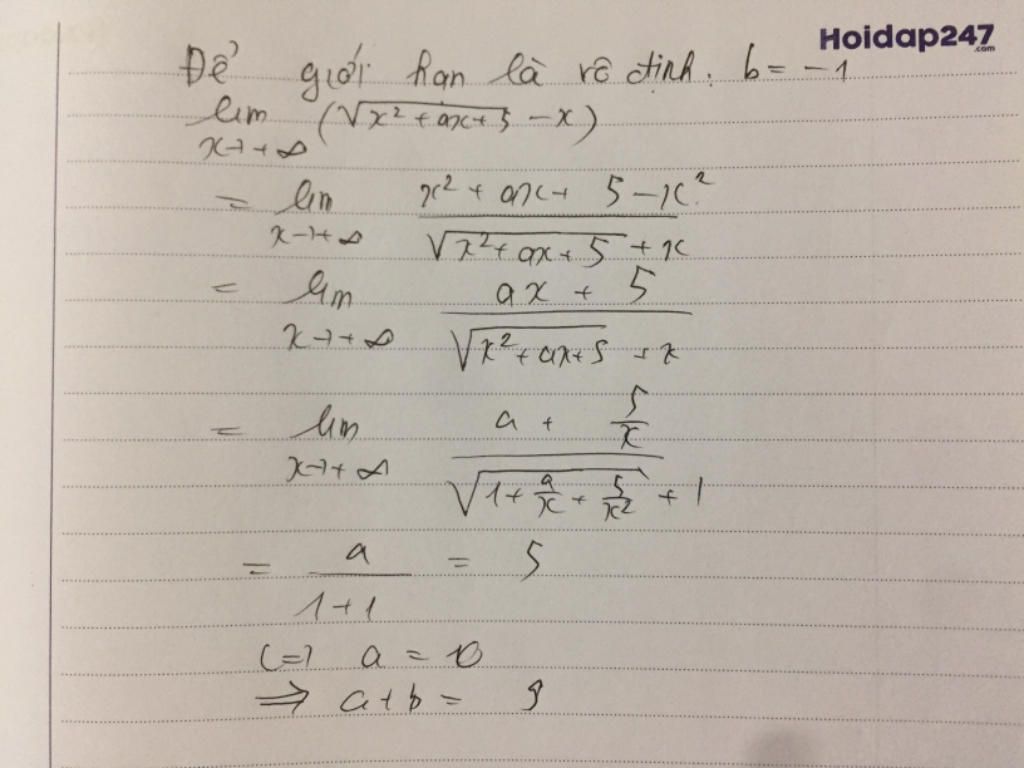 Hoidap247
.com
Để giới hạn là vô định. b = -1
lim (√x² + ax + 5 - x)
x→+∞
= lim x² + ax + 5 - x²
x→+∞ √x² + ax + 5 + x
= lim ax + 5
x→+∞ √x² + ax + 5 + x
= lim a + 5/x
x→+∞ √1 + a/x + 5/x² + 1
= a/1+1 = 5
(=) a = 10
⇒ a + b = 9